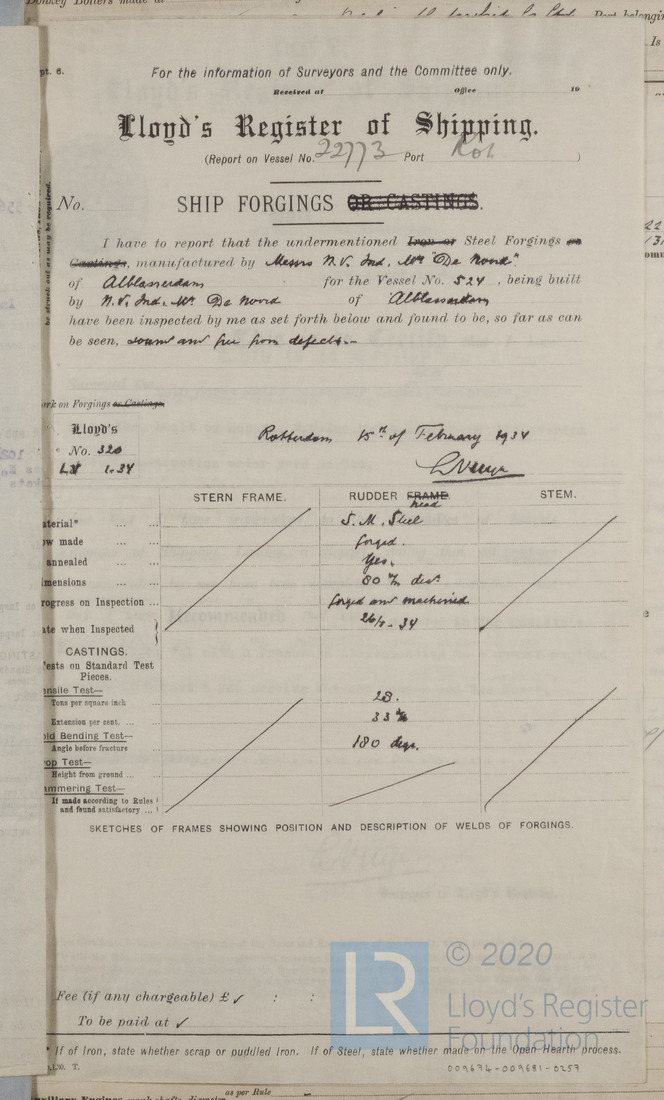 pt. 6.
For the information of Surveyors and the Committee only.
Received at Office 19
Lloyd's Register of Shipping.
(Report on Vessel No. 22773 Port Rot )
No. SHIP FORGINGS OR CASTINGS.
be struck out as may be required.
I have to report that the undermentioned Iron or Steel Forgings or
Castings, manufactured by Messrs N.V. Ind. Mij "De Noord"
of Alblasserdam for the Vessel No. 524, being built
by N.V. Ind. Mij De Noord of Alblasserdam
have been inspected by me as set forth below and found to be, so far as can
be seen, sound and free from defects.-
ark on Forgings or Castings.
Lloyd's
No. 320
1-34
Rotterdam 15th of February 1934
STERN FRAME. RUDDER FRAME. STEM.
head
aterial* ... ... S.M. Steel
ow made ... ... forged.
annealed ... ... Yes.
imensions ... ... 80 m/m dia.
rogress on Inspection ... forged and machined.
ate when Inspected 26/1-34
CASTINGS.
ests on Standard Test
Pieces.
ensile Test—
Tons per square inch ... 28.
Extension per cent. ... ... 33 %
old Bending Test—
Angle before fracture 180 degr.
rop Test—
Height from ground ... ...
ammering Test—
If made according to Rules
and found satisfactory ...
SKETCHES OF FRAMES SHOWING POSITION AND DESCRIPTION OF WELDS OF FORGINGS.
Fee (if any chargeable) £ ✓ : :
To be paid at ✓
* If of Iron, state whether scrap or puddled Iron. If of Steel, state whether made on the Open Hearth process.
.30. T.
009674-009681-0257
LR
© 2020
Lloyd's Register
Foundation
as per Rule